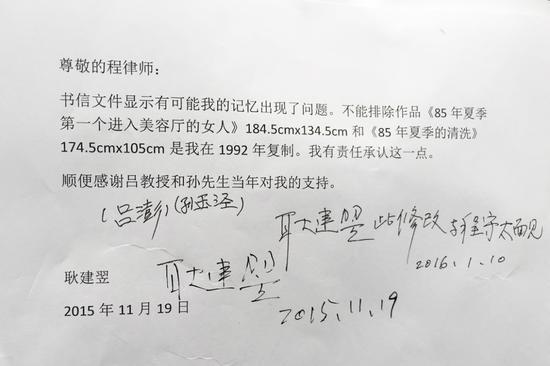 尊敬的程律师：
书信文件显示有可能我的记忆出现了问题。不能排除作品《85 年夏季
第一个进入美容厅的女人》184.5cmx134.5cm 和《85 年夏季的清洗》
174.5cmx105cm 是我在 1992 年复制。我有责任承认这一点。
顺便感谢吕教授和孙先生当年对我的支持。
(吕澎)(孙玉泾)
耿建翌 此修改 程守太面见
2016.1.10
耿建翌 耿建翌
2015 年 11 月 19 日 2015.11.19